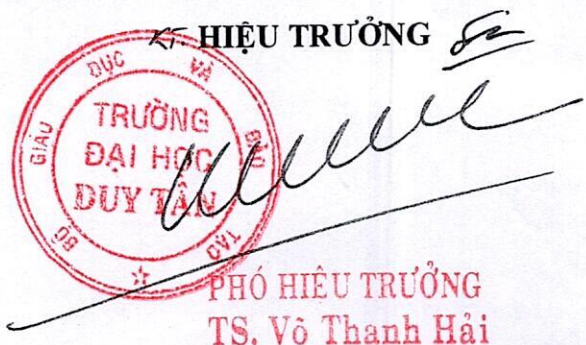 KT. HIỆU TRƯỞNG
BỘ GIÁO DỤC VÀ ĐÀO TẠO
TRƯỜNG
ĐẠI HỌC
DUY TÂN
PHÓ HIỆU TRƯỞNG
TS. Võ Thanh Hải